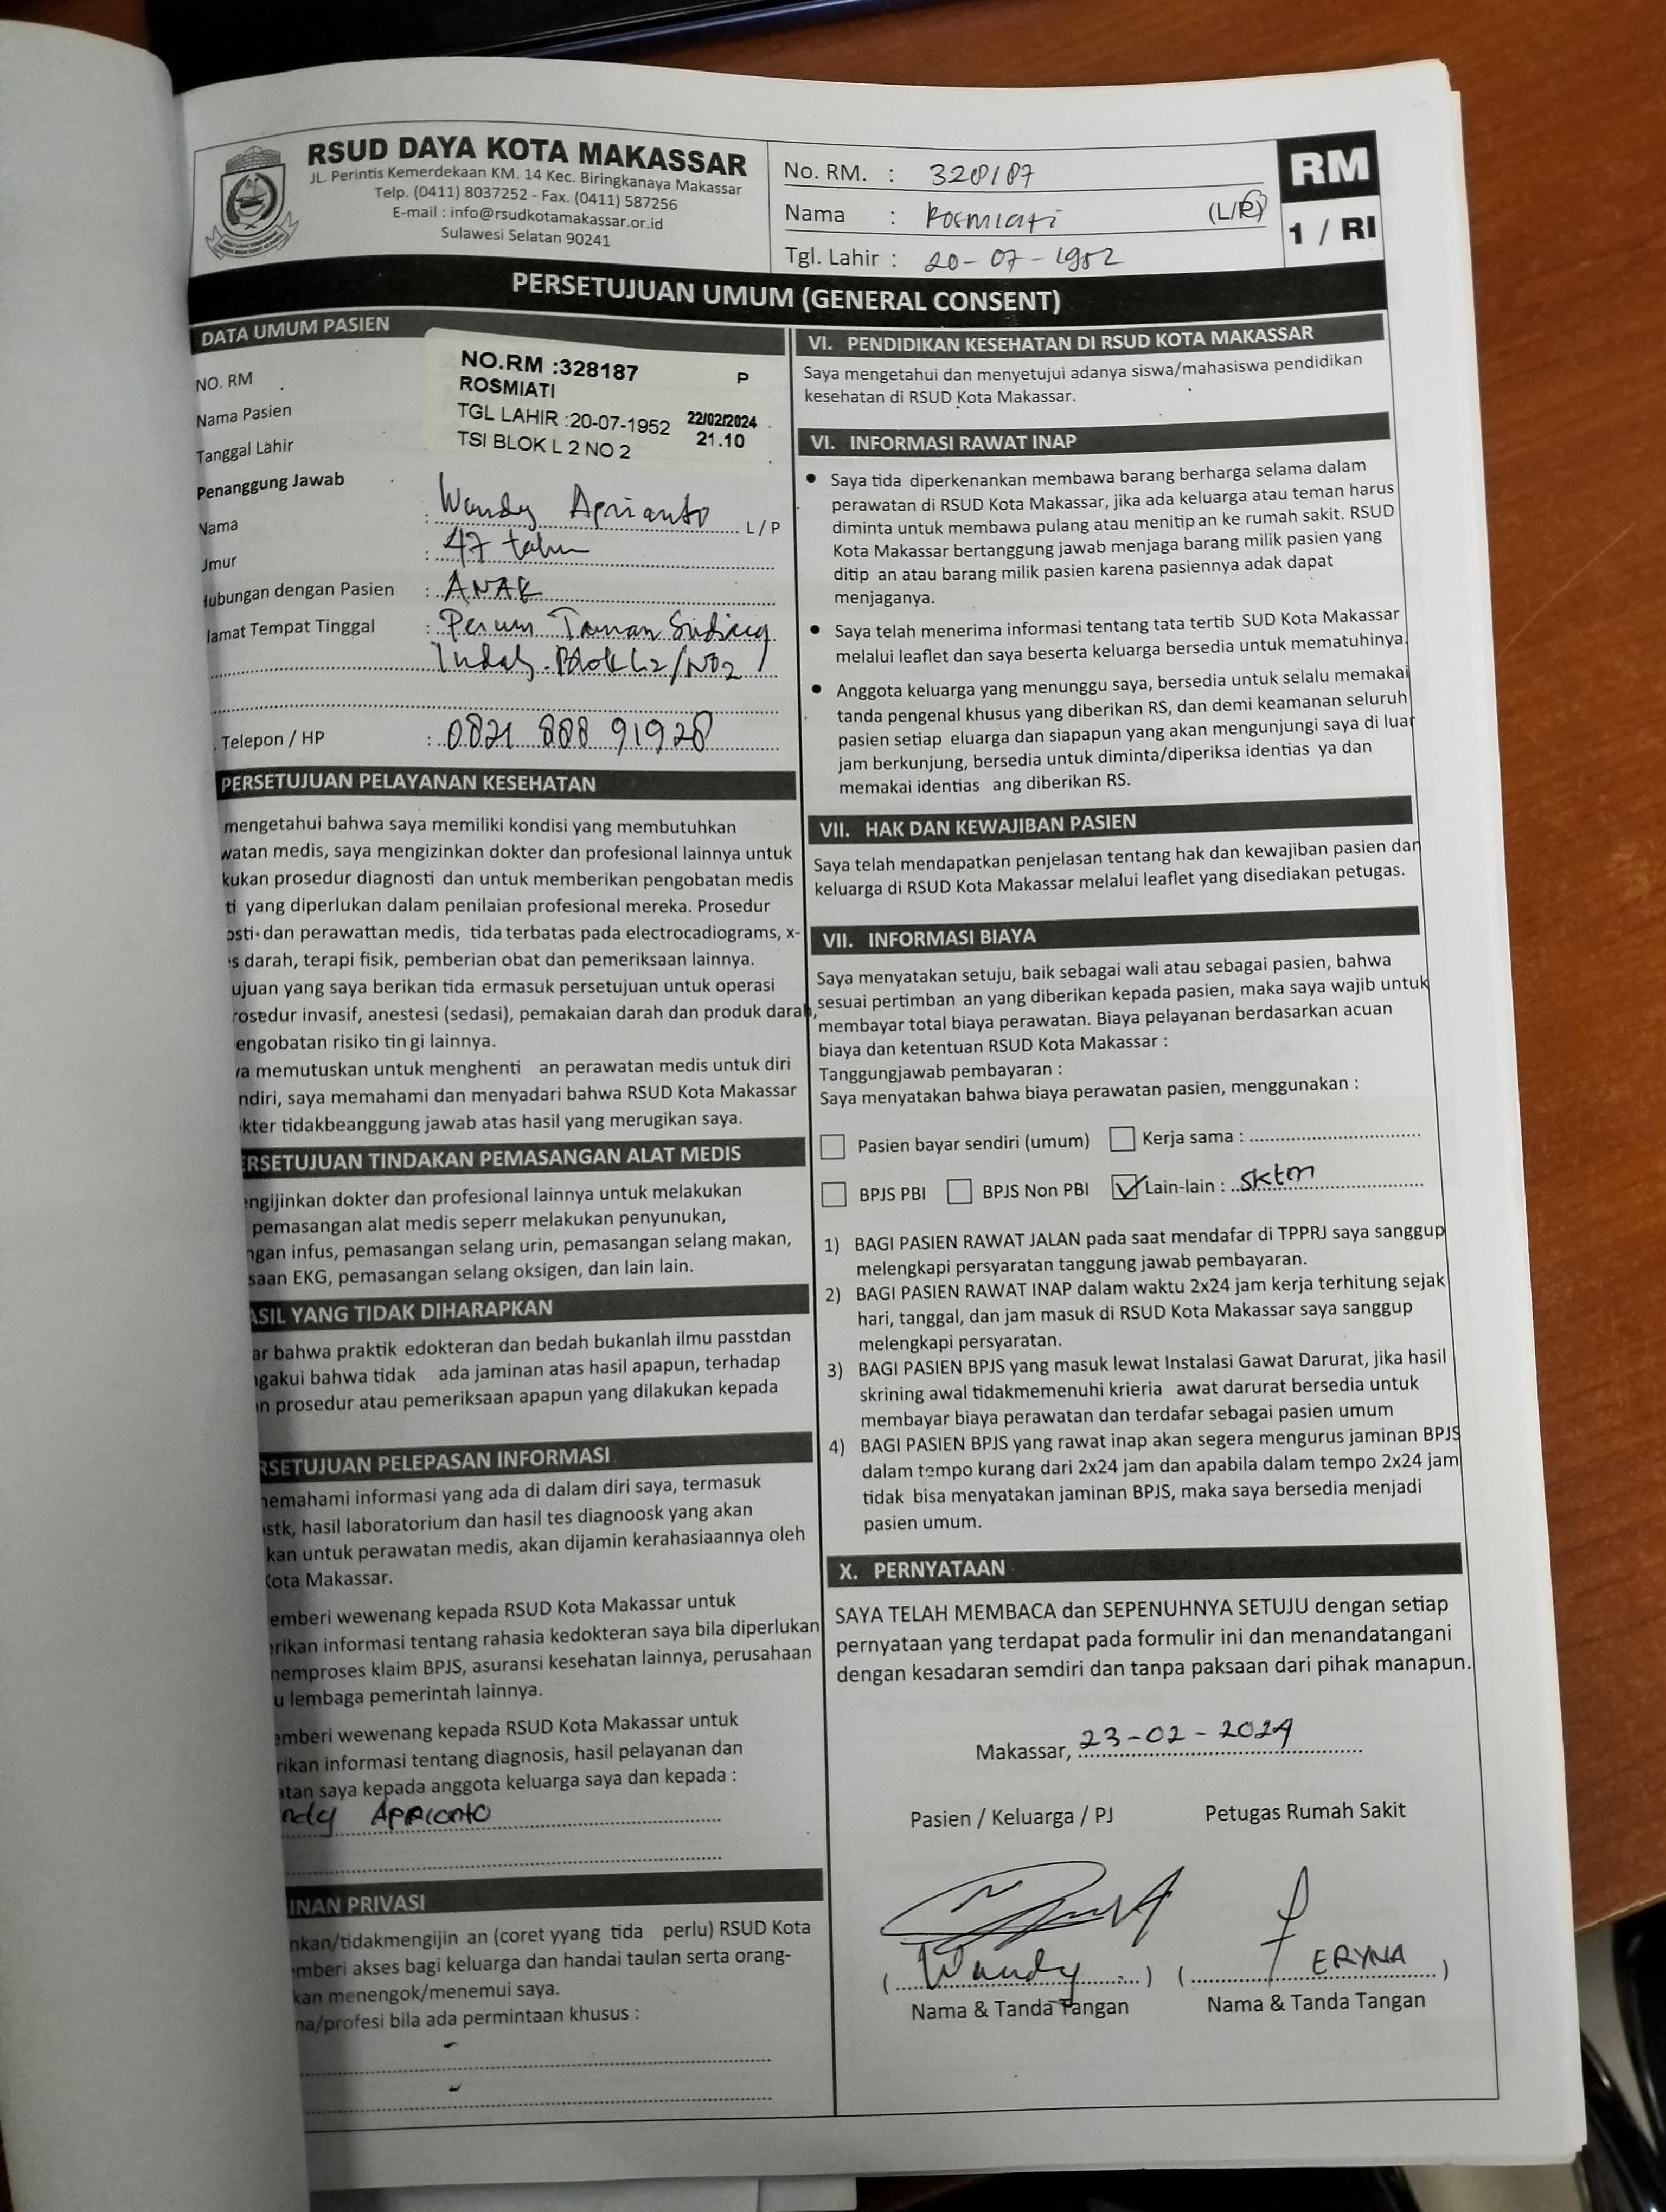 RSUD DAYA KOTA MAKASSAR
JL. Perintis Kemerdekaan KM. 14 Kec. Biringkanaya Makassar
Telp. (0411) 8037252 - Fax. (0411) 587256
E-mail : info@rsudkotamakassar.or.id
Sulawesi Selatan 90241
No. RM. : 328187
Nama : Rosmiati (L/P)
Tgl. Lahir : 20-07-1952
RM
1 / RI
PERSETUJUAN UMUM (GENERAL CONSENT)
DATA UMUM PASIEN
NO. RM
Nama Pasien
Tanggal Lahir
NO.RM :328187 P
ROSMIATI
TGL LAHIR :20-07-1952 22/02/2024
TSI BLOK L 2 NO 2 21.10
Penanggung Jawab
Nama : Wandy Aprianto L / P
Umur : 47 tahun
Hubungan dengan Pasien : ANAK
lamat Tempat Tinggal : Perum Taman Sudiang
Indah Blok L2/NO2
. Telepon / HP : 0821 888 91928
PERSETUJUAN PELAYANAN KESEHATAN
mengetahui bahwa saya memiliki kondisi yang membutuhkan
watan medis, saya mengizinkan dokter dan profesional lainnya untuk
kukan prosedur diagnosti dan untuk memberikan pengobatan medis
ti yang diperlukan dalam penilaian profesional mereka. Prosedur
osti dan perawattan medis, tida terbatas pada electrocadiograms, x-
s darah, terapi fisik, pemberian obat dan pemeriksaan lainnya.
ujuan yang saya berikan tida ermasuk persetujuan untuk operasi
rosedur invasif, anestesi (sedasi), pemakaian darah dan produk darah,
engobatan risiko tin gi lainnya.
ya memutuskan untuk menghenti an perawatan medis untuk diri
ndiri, saya memahami dan menyadari bahwa RSUD Kota Makassar
kter tidakbeanggung jawab atas hasil yang merugikan saya.
ERSETUJUAN TINDAKAN PEMASANGAN ALAT MEDIS
engijinkan dokter dan profesional lainnya untuk melakukan
pemasangan alat medis seperr melakukan penyunukan,
ngan infus, pemasangan selang urin, pemasangan selang makan,
saan EKG, pemasangan selang oksigen, dan lain lain.
ASIL YANG TIDAK DIHARAPKAN
ar bahwa praktik edokteran dan bedah bukanlah ilmu passtdan
ngakui bahwa tidak ada jaminan atas hasil apapun, terhadap
n prosedur atau pemeriksaan apapun yang dilakukan kepada
RSETUJUAN PELEPASAN INFORMASI
nemahami informasi yang ada di dalam diri saya, termasuk
stk, hasil laboratorium dan hasil tes diagnoosk yang akan
kan untuk perawatan medis, akan dijamin kerahasiaannya oleh
Kota Makassar.
emberi wewenang kepada RSUD Kota Makassar untuk
erikan informasi tentang rahasia kedokteran saya bila diperlukan
nemproses klaim BPJS, asuransi kesehatan lainnya, perusahaan
u lembaga pemerintah lainnya.
emberi wewenang kepada RSUD Kota Makassar untuk
rikan informasi tentang diagnosis, hasil pelayanan dan
atan saya kepada anggota keluarga saya dan kepada :
ndy Aprianto
INAN PRIVASI
nkan/tidakmengijin an (coret yyang tida perlu) RSUD Kota
emberi akses bagi keluarga dan handai taulan serta orang-
kan menengok/menemui saya.
na/profesi bila ada permintaan khusus :
VI. PENDIDIKAN KESEHATAN DI RSUD KOTA MAKASSAR
Saya mengetahui dan menyetujui adanya siswa/mahasiswa pendidikan
kesehatan di RSUD Kota Makassar.
VI. INFORMASI RAWAT INAP
• Saya tida diperkenankan membawa barang berharga selama dalam
perawatan di RSUD Kota Makassar, jika ada keluarga atau teman harus
diminta untuk membawa pulang atau menitip an ke rumah sakit. RSUD
Kota Makassar bertanggung jawab menjaga barang milik pasien yang
ditip an atau barang milik pasien karena pasiennya adak dapat
menjaganya.
• Saya telah menerima informasi tentang tata tertib SUD Kota Makassar
melalui leaflet dan saya beserta keluarga bersedia untuk mematuhinya.
• Anggota keluarga yang menunggu saya, bersedia untuk selalu memakai
tanda pengenal khusus yang diberikan RS, dan demi keamanan seluruh
pasien setiap eluarga dan siapapun yang akan mengunjungi saya di luar
jam berkunjung, bersedia untuk diminta/diperiksa identias ya dan
memakai identias ang diberikan RS.
VII. HAK DAN KEWAJIBAN PASIEN
Saya telah mendapatkan penjelasan tentang hak dan kewajiban pasien dan
keluarga di RSUD Kota Makassar melalui leaflet yang disediakan petugas.
VII. INFORMASI BIAYA
Saya menyatakan setuju, baik sebagai wali atau sebagai pasien, bahwa
sesuai pertimban an yang diberikan kepada pasien, maka saya wajib untuk
membayar total biaya perawatan. Biaya pelayanan berdasarkan acuan
biaya dan ketentuan RSUD Kota Makassar :
Tanggungjawab pembayaran :
Saya menyatakan bahwa biaya perawatan pasien, menggunakan :
Pasien bayar sendiri (umum) Kerja sama :
BPJS PBI BPJS Non PBI Lain-lain : sktm
1) BAGI PASIEN RAWAT JALAN pada saat mendafar di TPPRJ saya sanggup
melengkapi persyaratan tanggung jawab pembayaran.
2) BAGI PASIEN RAWAT INAP dalam waktu 2x24 jam kerja terhitung sejak
hari, tanggal, dan jam masuk di RSUD Kota Makassar saya sanggup
melengkapi persyaratan.
3) BAGI PASIEN BPJS yang masuk lewat Instalasi Gawat Darurat, jika hasil
skrining awal tidakmemenuhi krieria awat darurat bersedia untuk
membayar biaya perawatan dan terdafar sebagai pasien umum
4) BAGI PASIEN BPJS yang rawat inap akan segera mengurus jaminan BPJS
dalam tempo kurang dari 2x24 jam dan apabila dalam tempo 2x24 jam
tidak bisa menyatakan jaminan BPJS, maka saya bersedia menjadi
pasien umum.
X. PERNYATAAN
SAYA TELAH MEMBACA dan SEPENUHNYA SETUJU dengan setiap
pernyataan yang terdapat pada formulir ini dan menandatangani
dengan kesadaran semdiri dan tanpa paksaan dari pihak manapun.
Makassar, 23-02-2024
Pasien / Keluarga / PJ Petugas Rumah Sakit
( Wandy ) ( ERYNA )
Nama & Tanda Tangan Nama & Tanda Tangan